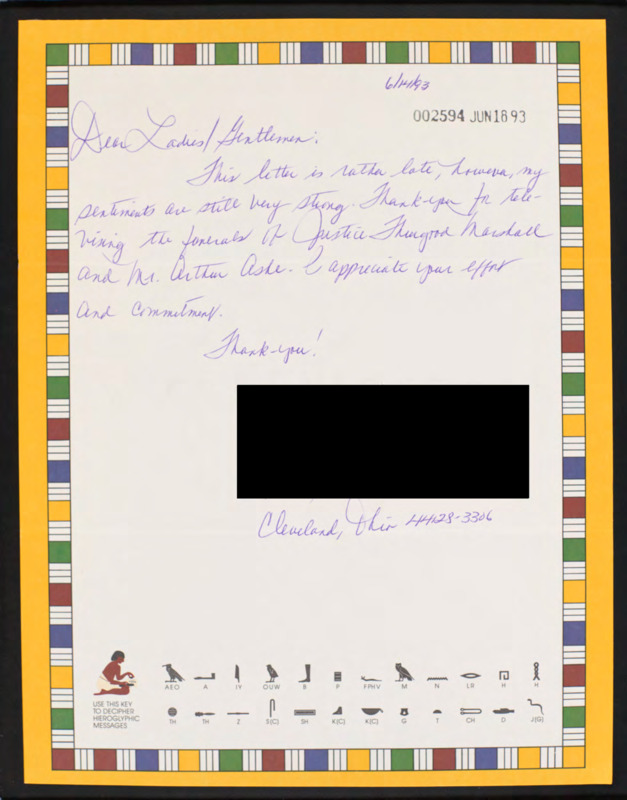 6/14/93
002594 JUN 18 93
Dear Ladies/Gentlemen:
This letter is rather late, however, my
sentiments are still very strong. Thank-you for tele-
vising the funerals of Justice Thurgood Marshall
and Mr. Arthur Ashe. I appreciate your effort
and commitment.
Thank-you!
Cleveland, Ohio 44128-3306
AEO A IY OUW B P FPHV M N LR H H
USE THIS KEY
TO DECIPHER
HIEROGLYPHIC
MESSAGES
TH TH Z S(C) SH K(C) K(C) G T CH D J(G)